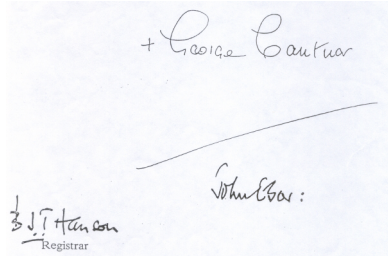 + George Cantuar
John Ebor:
J.T Hanson
Registrar